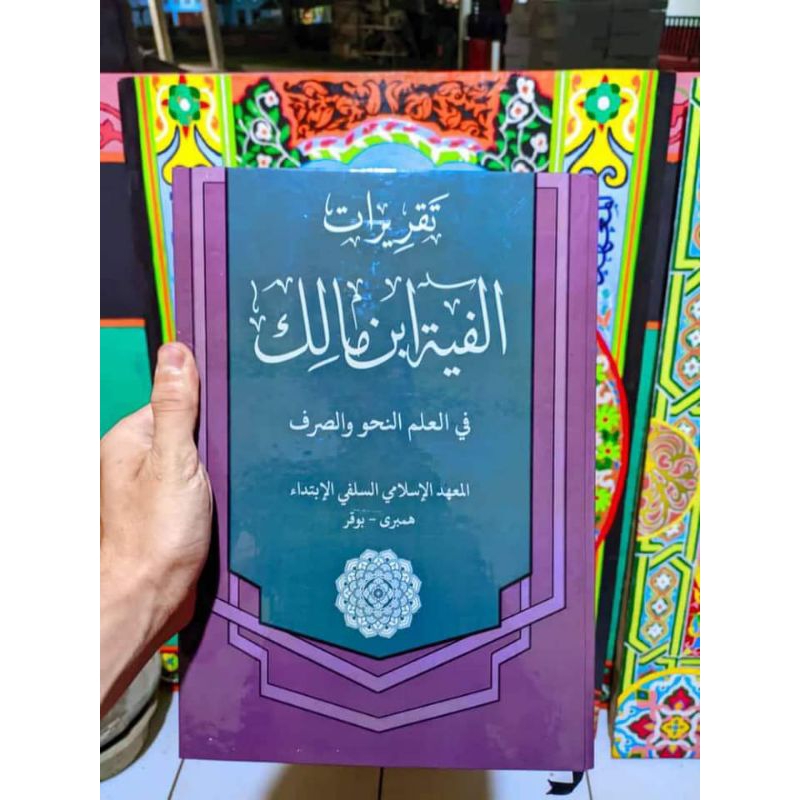 تَقرِيرات
الفية ابن مالِك
في العلم النحو والصرف
المعهد الإسلامي السلفي الإبتداء
همبرى - بوقر